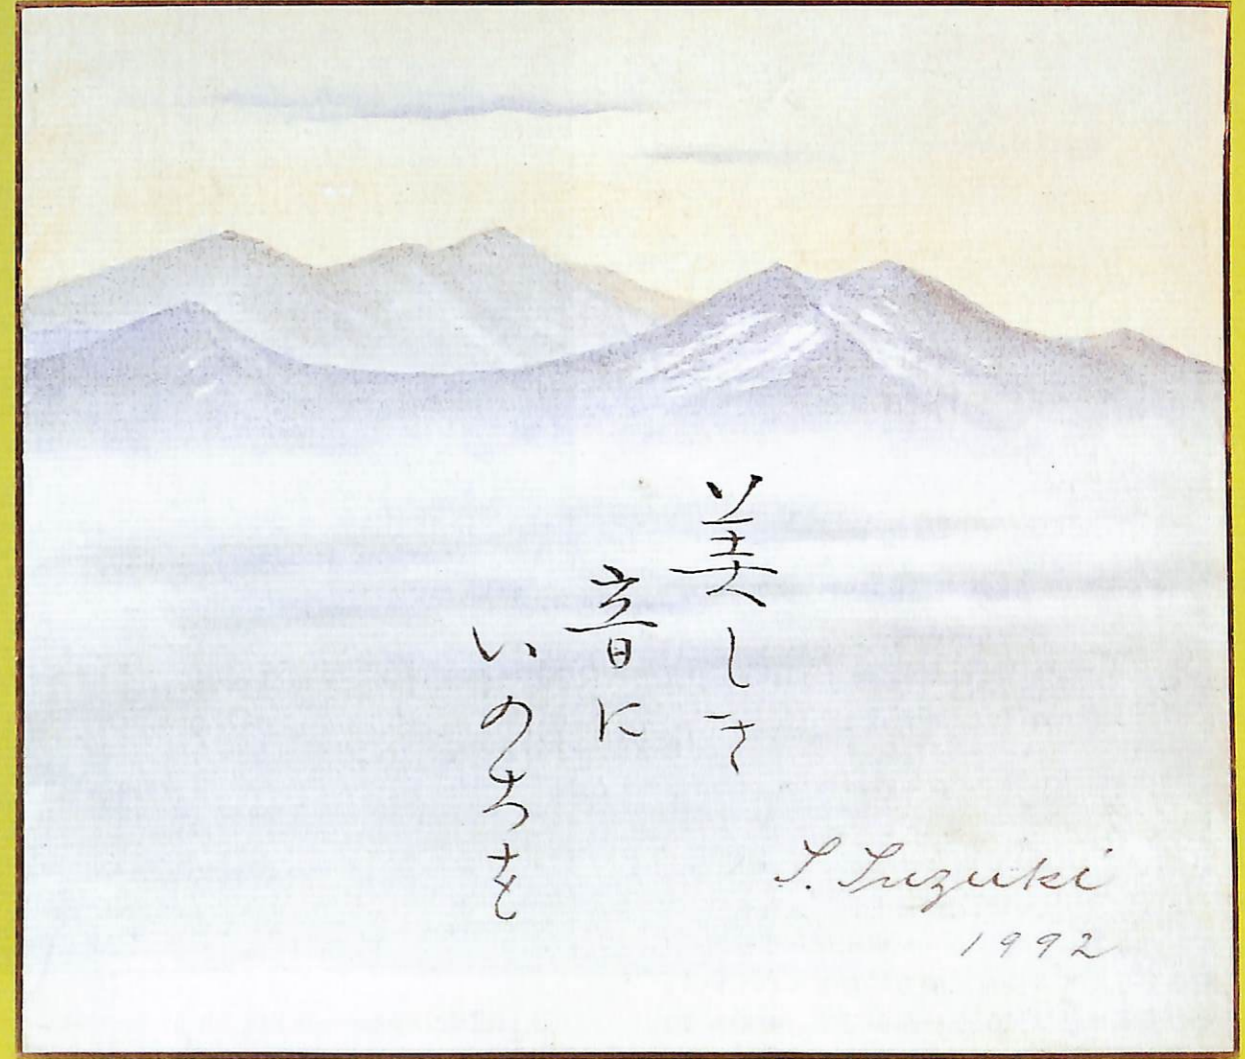 美しき
音に
いのちを
S. Suzuki
1992